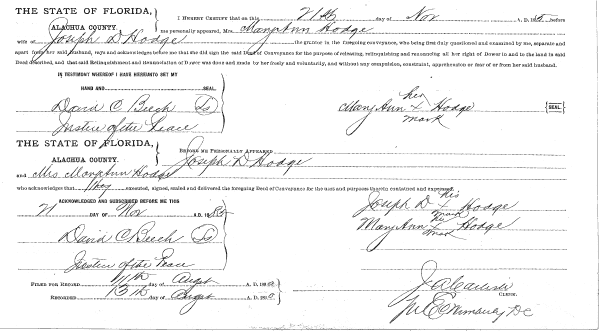 THE STATE OF FLORIDA,
ALACHUA COUNTY.
I HEREBY CERTIFY that on this 21st day of Nov A. D. 188 before
me personally appeared, Mrs. Mary Ann Hodge
wife of Joseph D Hodge the grantor in the foregoing conveyance, who being first duly questioned and examined by me, separate and
apart from her said husband, says and acknowledges before me that she did sign the said Deed of Conveyance for the purpose of releasing, relinquishing and renouncing all her right of Dower in and to the land in said
Deed described, and that said Relinquishment and Renunciation of Dower was done and made by her freely and voluntarily, and without any compulsion, constraint, apprehension or fear of or from her said husband.
IN TESTIMONY WHEREOF I HAVE HEREUNTO SET MY
HAND AND SEAL.
David C Beech Ls
Justice of the Peace
her
Mary Ann X Hodge [SEAL.]
mark
THE STATE OF FLORIDA,
ALACHUA COUNTY.
BEFORE ME PERSONALLY APPEARED
Joseph D Hodge
and Mrs. Mary Ann Hodge
who acknowledges that they executed, signed, sealed and delivered the foregoing Deed of Conveyance for the uses and purposes therein contained and expressed.
ACKNOWLEDGED AND SUBSCRIBED BEFORE ME THIS
21 DAY OF Nov A.D. 188
David C Beech Ls
Justice of the Peace
his
Joseph D X Hodge
mark
her
Mary Ann X Hodge
mark
FILED FOR RECORD day of Augst A. D. 188
RECORDED 13th day of Augst A. D. 188
CLERK.
DC